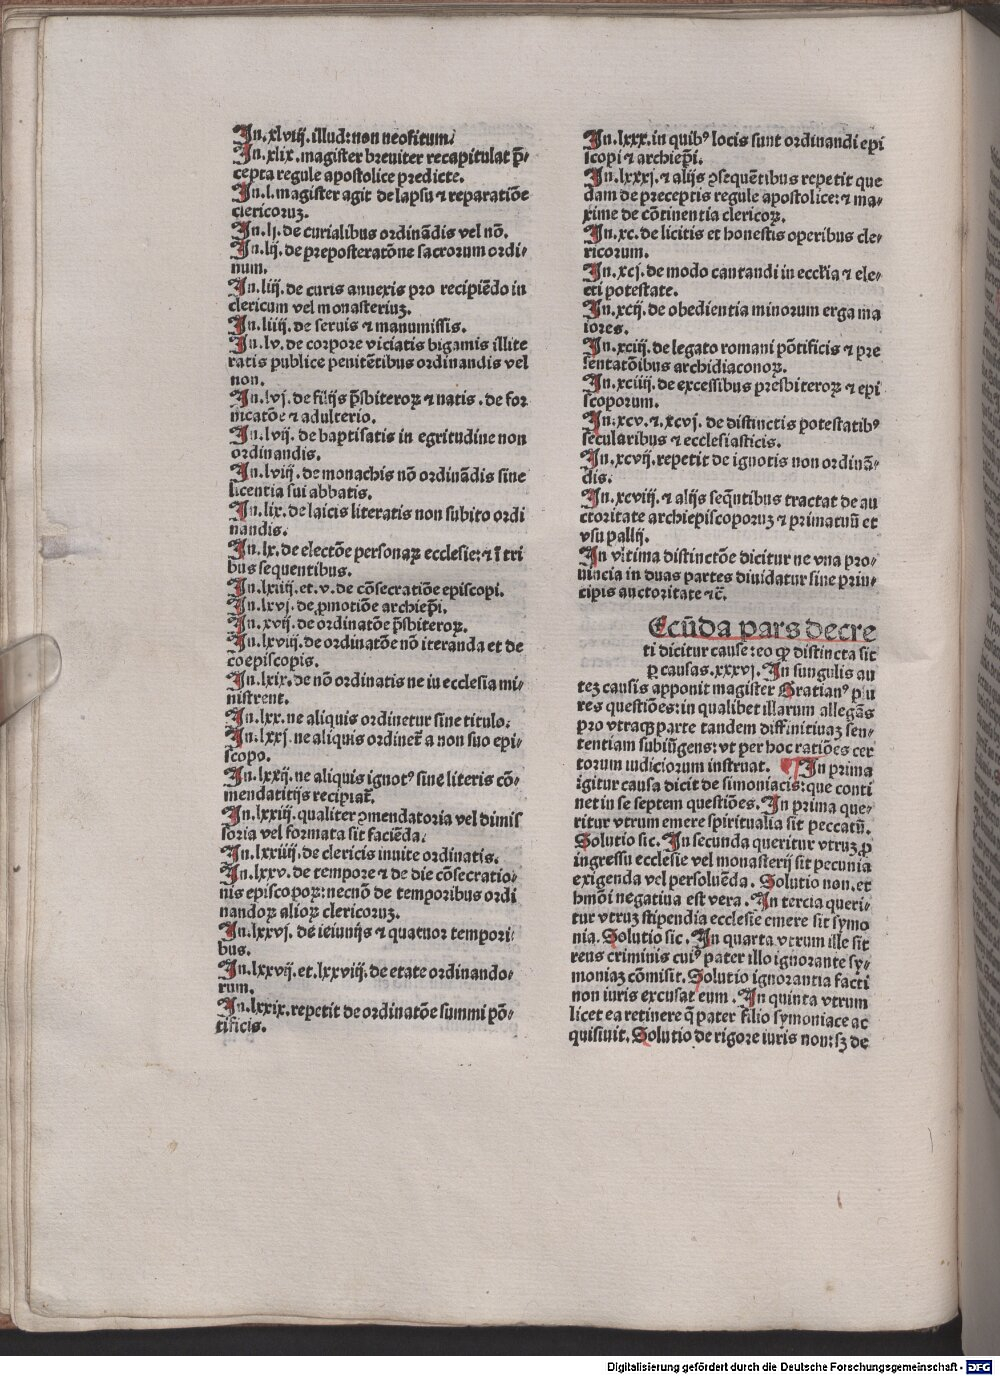 In.xlviij.illud:non neofitum.
In.xlix.magister breuiter recapitulat p̄-
cepta regule apostolice predicte.
In.l.magister agit de lapsu ⁊ reparatiōe
clericoruꝫ.
In.lj.de curialibus ordinādis vel nō.
In.lij.de preposteratōne sacrorum ordi-
num.
In.liij.de curis annexis pro recipiēdo in
clericum vel monasteriuꝫ.
In.liiij.de seruis ⁊ manumissis.
In.lv.de corpore viciatis bigamis illite
ratis publice penitētibus ordinandis vel
non.
In.lvj.de filijs p̄sbiteroꝝ ⁊ natis.de for
nicatōe ⁊ adulterio.
In.lvij.de baptisatis in egritudine non
ordinandis.
In.lviij.de monachis nō ordinādis sine
licentia sui abbatis.
In.lix.de laicis literatis non subito ordi
nandis.
In.lx.de electōe personaꝝ ecclesie:⁊ ī tri
bus sequentibus.
In.lxiiij.et.v.de cōsecratiōe episcopi.
In.lxvj.de ꝓmotiōe archiep̄i.
In.xvij.de ordinatōe p̄sbiteroꝝ.
In.lxviij.de ordinatōe nō iteranda et de
coepiscopis.
In.lxix.de nō ordinatis ne in ecclesia mi-
nistrent.
In.lxx.ne aliquis ordinetur sine titulo.
In.lxxj.ne aliquis ordineť a non suo epi-
scopo.
In.lxxij.ne aliquis ignotꝰ sine literis cō-
mendatitijs recipiať.
In.lxxiij.qualiter ꝯmendatoria vel dimis
soria vel formata sit faciēda.
In.lxxiiij.de clericis inuite ordinatis.
In.lxxv.de tempore ⁊ de die cōsecratio-
nis episcopoꝝ:necnō de temporibus ordi
nandoꝝ alioꝝ clericoruꝫ.
In.lxxvj.de ieiunijs ⁊ quatuor tempori-
bus.
In.lxxvij.et.lxxviij.de etate ordinando-
rum.
In.lxxix.repetit de ordinatōe summi pō-
tificis.
In.lxxx.in quibꝰ locis sunt ordinandi epi
scopi ⁊ archiep̄i.
In.lxxxj.⁊ alijs ꝯsequētibus repetit que
dam de preceptis regule apostolice:⁊ ma-
xime de cōtinentia clericoꝝ.
In.xc.de licitis et honestis operibus cle-
ricorum.
In.xcj.de modo cantandi in eccľia ⁊ ele-
cti potestate.
In.xcij.de obedientia minorum erga ma
iores.
In.xciij.de legato romani pōtificis ⁊ pre
sentatōibus archidiaconoꝝ.
In.xciiij.de excessibus presbiteroꝝ ⁊ epi
scoporum.
In.xcv.⁊.xcvj.de distinctis potestatibꝰ
secularibus ⁊ ecclesiasticis.
In.xcvij.repetit de ignotis non ordinā-
dis.
In.xcviij.⁊ alijs seq̄ntibus tractat de au
ctoritate archiepiscoporuꝫ ⁊ primatuū et
vsu pallij.
In vltima distinctōe dicitur ne vna pro-
uincia in duas partes diuidatur sine prin-
cipis auctoritate ⁊c̄.
Ecūda pars decre
ti dicitur cause:eo ꝙ distincta sit
ꝑ causas.xxxvj.In singulis au
teꝫ causis apponit magister Gratianꝰ plu
res questiōes:in qualibet illarum allegās
pro vtraqꝫ parte tandem diffinitiuaꝫ sen-
tentiam subiūgens:vt per hoc ratiōes cer
torum iudiciorum instruat. ¶ In prima
igitur causa dicit de simoniacis:que conti
net in se septem questiōes.In prima que-
ritur vtrum emere spiritualia sit peccatū.
Solutio sic.In secunda queritur vtruꝫ ꝓ
ingressu ecclesie vel monasterij sit pecunia
exigenda vel persoluēda.Solutio non.et
hmōi negatiua est vera.In tercia queri-
tur vtruꝫ stipendia ecclesie emere sit symo
nia.Solutio sic.In quarta vtrum ille sit
reus criminis cuiꝰ pater illo ignorante sy-
moniaꝫ cōmisit.Solutio ignorantia facti
non iuris excusat eum.In quinta vtrum
licet ea retinere q̄ pater filio symoniace ac
quisiuit.Solutio de rigore iuris non:sꝫ de
Digitalisierung gefördert durch die Deutsche Forschungsgemeinschaft - DFG